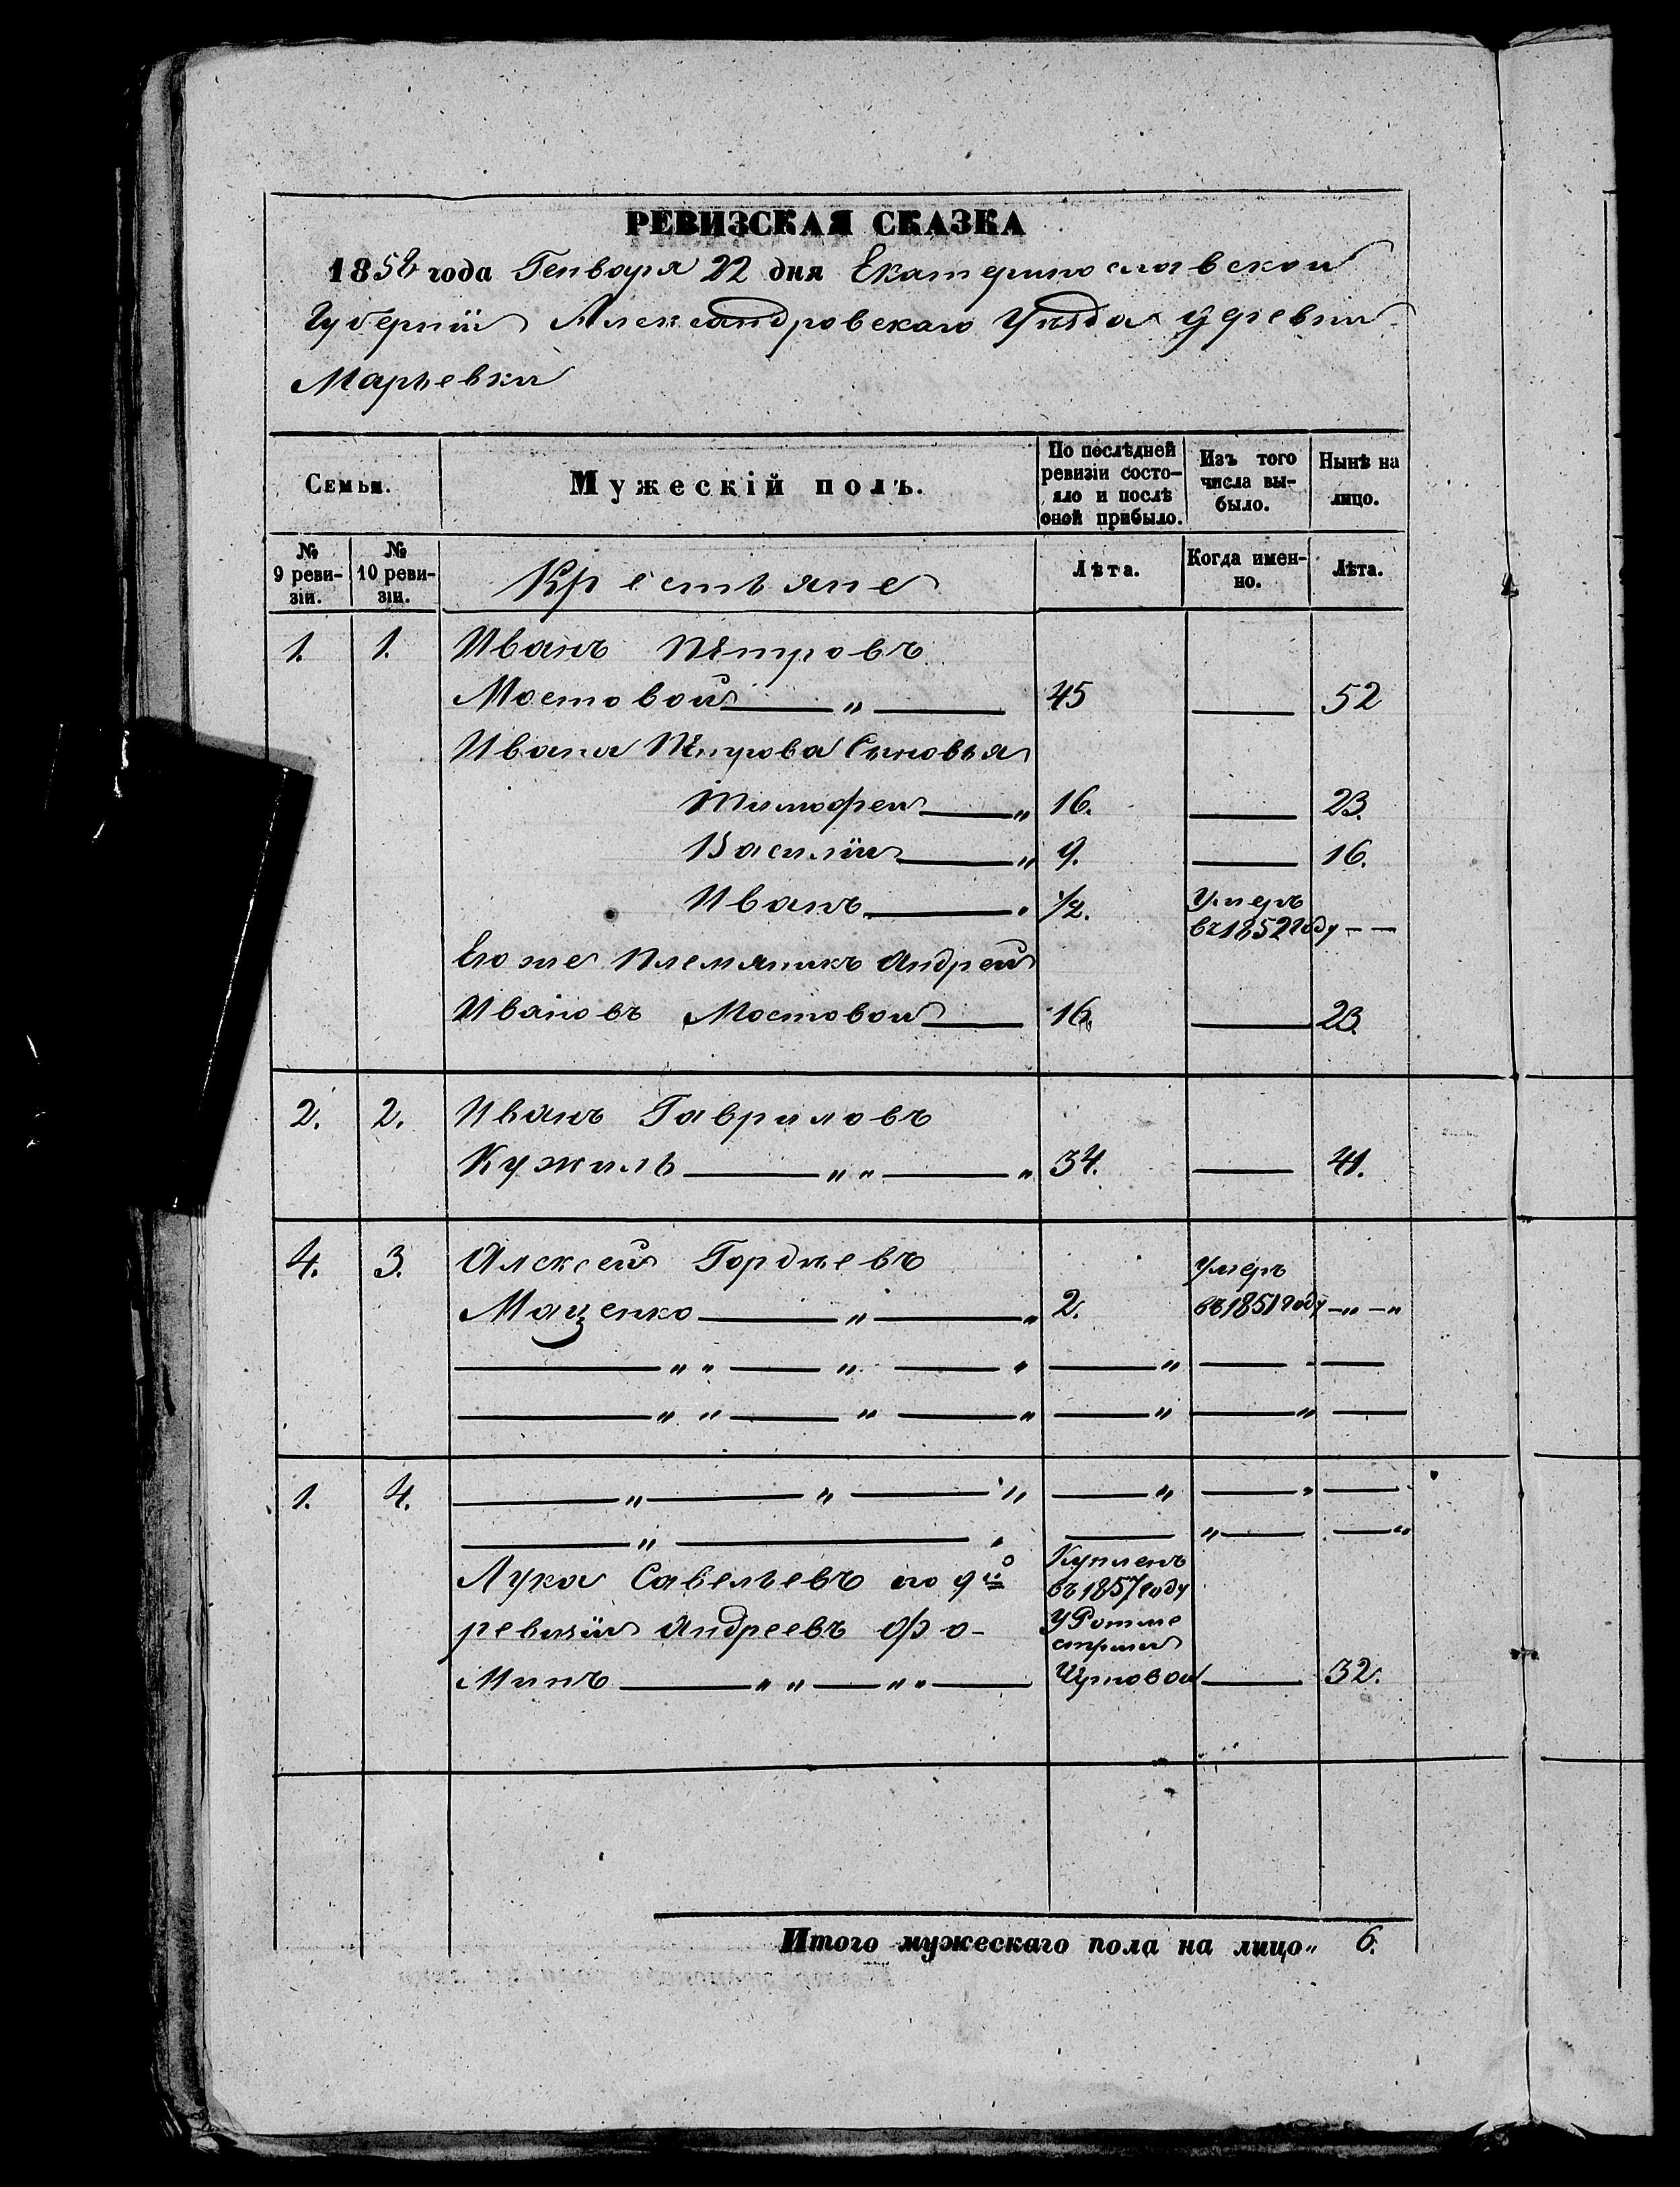 РЕВИЗСКАЯ СКАЗКА
1858 года Генваря 22 дня Екатеринославской
Губерніи Александровскаго Уѣзда деревни
Марьевки
Семьи. Мужескій полъ. По послѣдней ревизіи состояло и послѣ оной прибыло. Изъ того числа выбыло. Нынѣ на лицо.
№ 9 ревизіи. № 10 ревизіи. Крестьяне Лѣта. Когда именно. Лѣта.
1. 1. Иванъ Петровъ
Мостовой — „ — 45 — 52
Ивана Петрова Сыновья
Тимофей — „ 16. — 23.
Василій — „ 9. — 16.
Иванъ — „ 1/2. Умеръ
въ 1852 году — —
Его же Племяникъ Андрей
Ивановъ Мостовой — 16. — 23.
2. 2. Иванъ Гавриловъ
Кужиль — „ „ — „ 34. — 41.
4. 3. Алексей Гордѣевъ Умеръ
Маценко — „ — „ 2. въ 1851 году — „ — „
— „ „ — „ — „ — „ — - —
— „ „ — „ — „ — „ — „ —
1. 4. — „ — „ — „ — „ — „ —
— „ — „ — „ — — „
Лука Савельевъ по 9й Купленъ
въ 1857 году
ревизіи Андреевъ Фо- У Ротми-
стрши
Минъ — „ „ — „ „ — — 32.
Итого мужескаго пола на лицо „ 6.